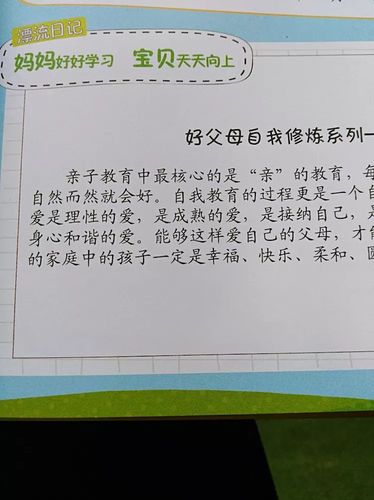 漂流日记
妈妈好好学习 宝贝天天向上
好父母自我修炼系列
亲子教育中最核心的是“亲”的教育，每
自然而然就会好。自我教育的过程更是一个自
爱是理性的爱，是成熟的爱，是接纳自己，是
身心和谐的爱。能够这样爱自己的父母，才能
的家庭中的孩子一定是幸福、快乐、柔和、圆